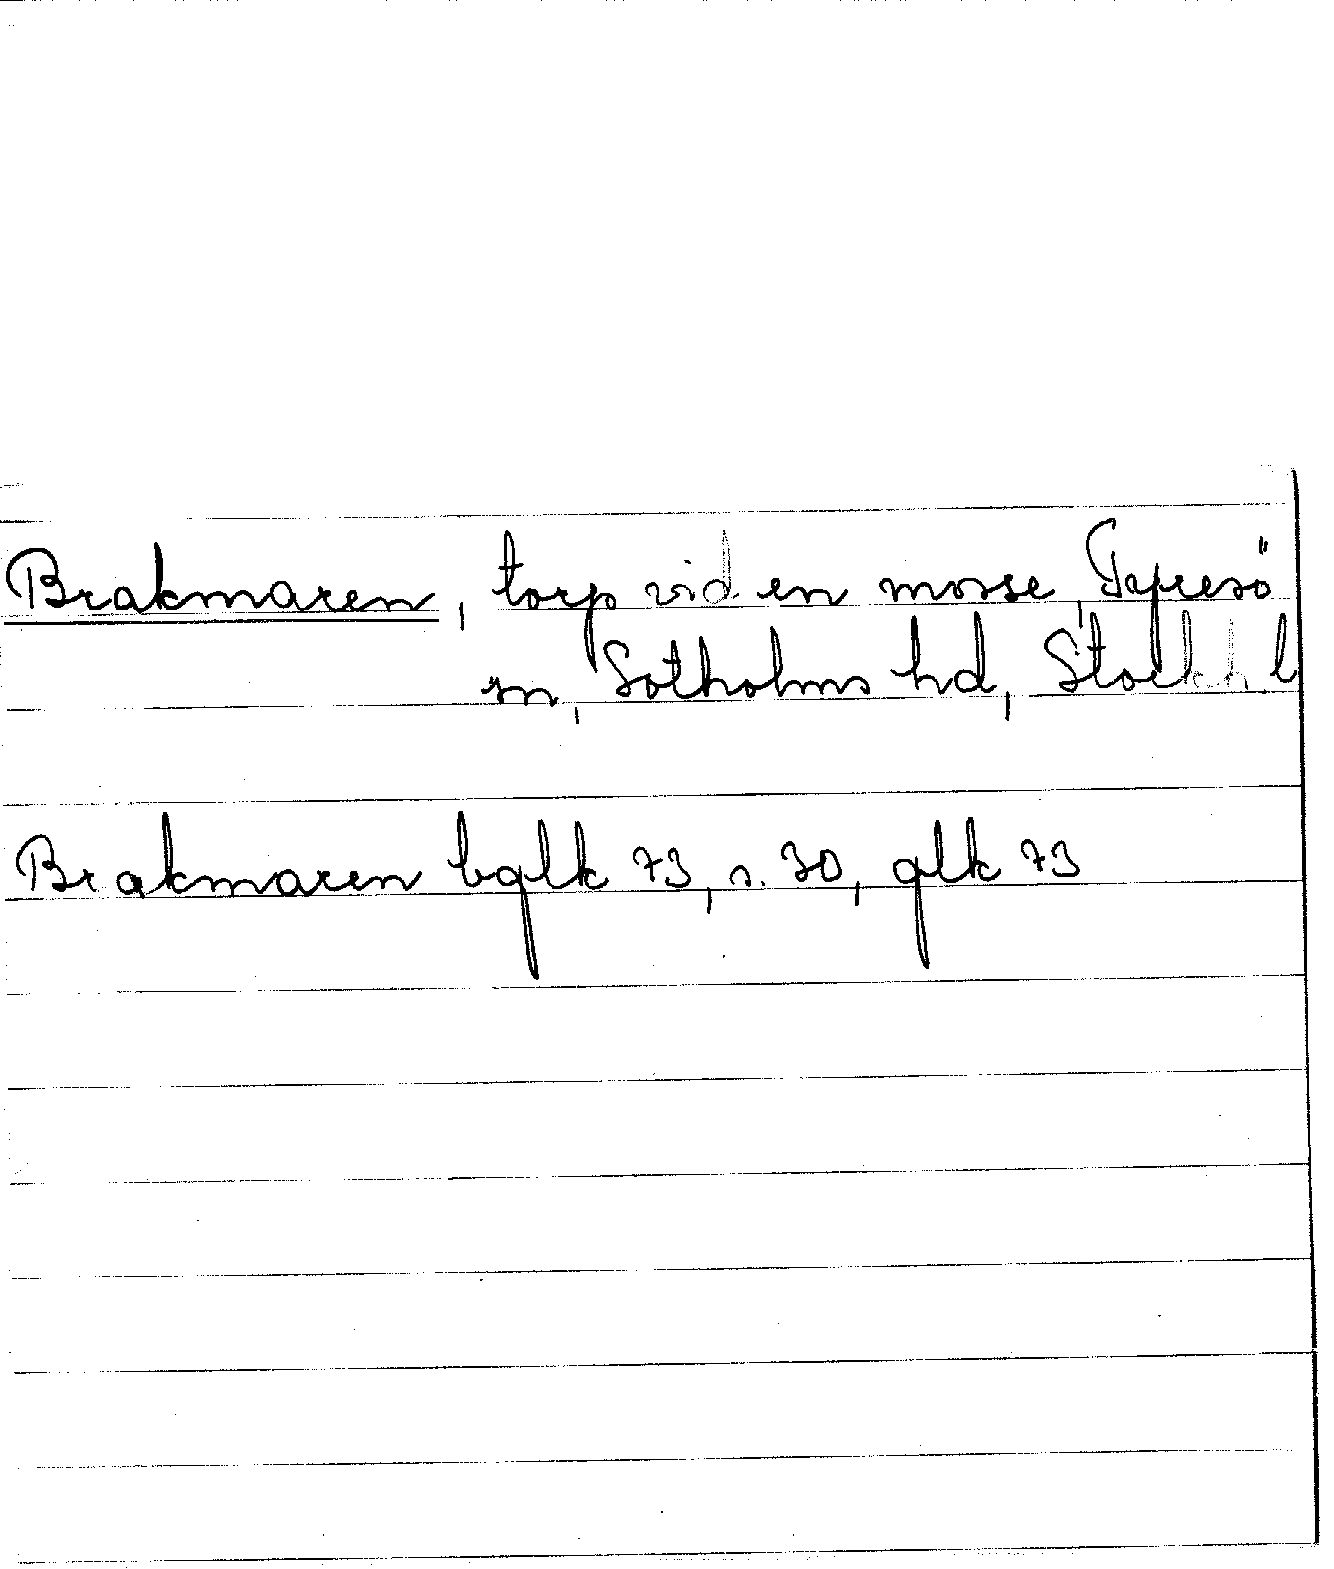 Brakmaren, torp vid en mosse, Tyresö
sn, Sotholms hd, Stockh l
Brakmaren bglk 73, s. 30, glk 73